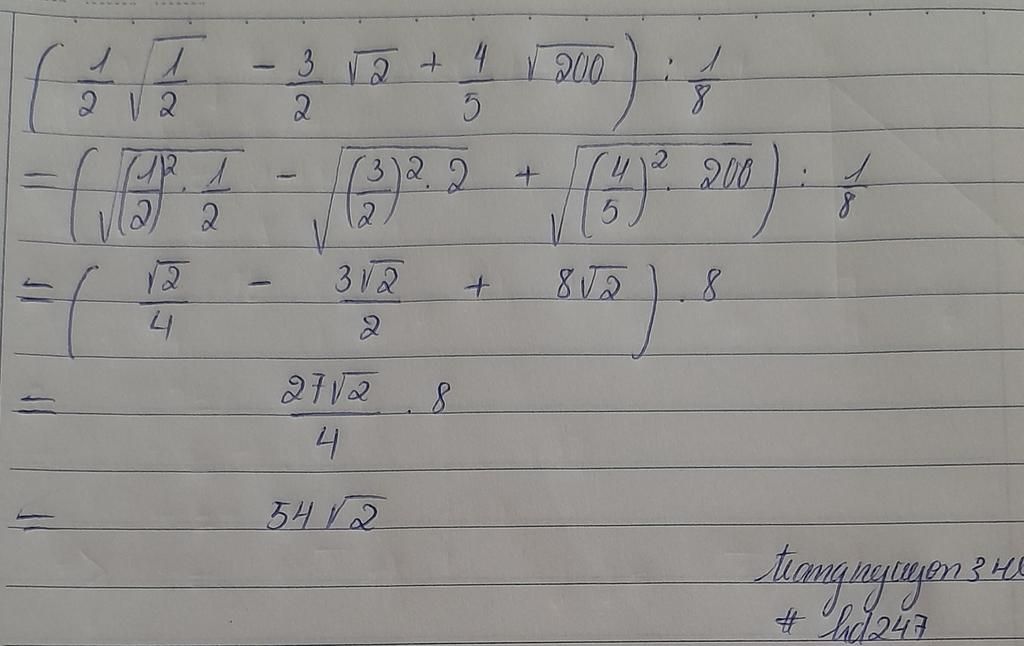 ( 1/2 √(1/2) - 3/2 √2 + 4/5 √200 ) : 1/8
= ( √((1/2)² . 1/2) - √((3/2)² . 2) + √((4/5)² . 200) ) : 1/8
= ( √2/4 - 3√2/2 + 8√2 ) . 8
= 27√2/4 . 8
= 54√2
# hd247